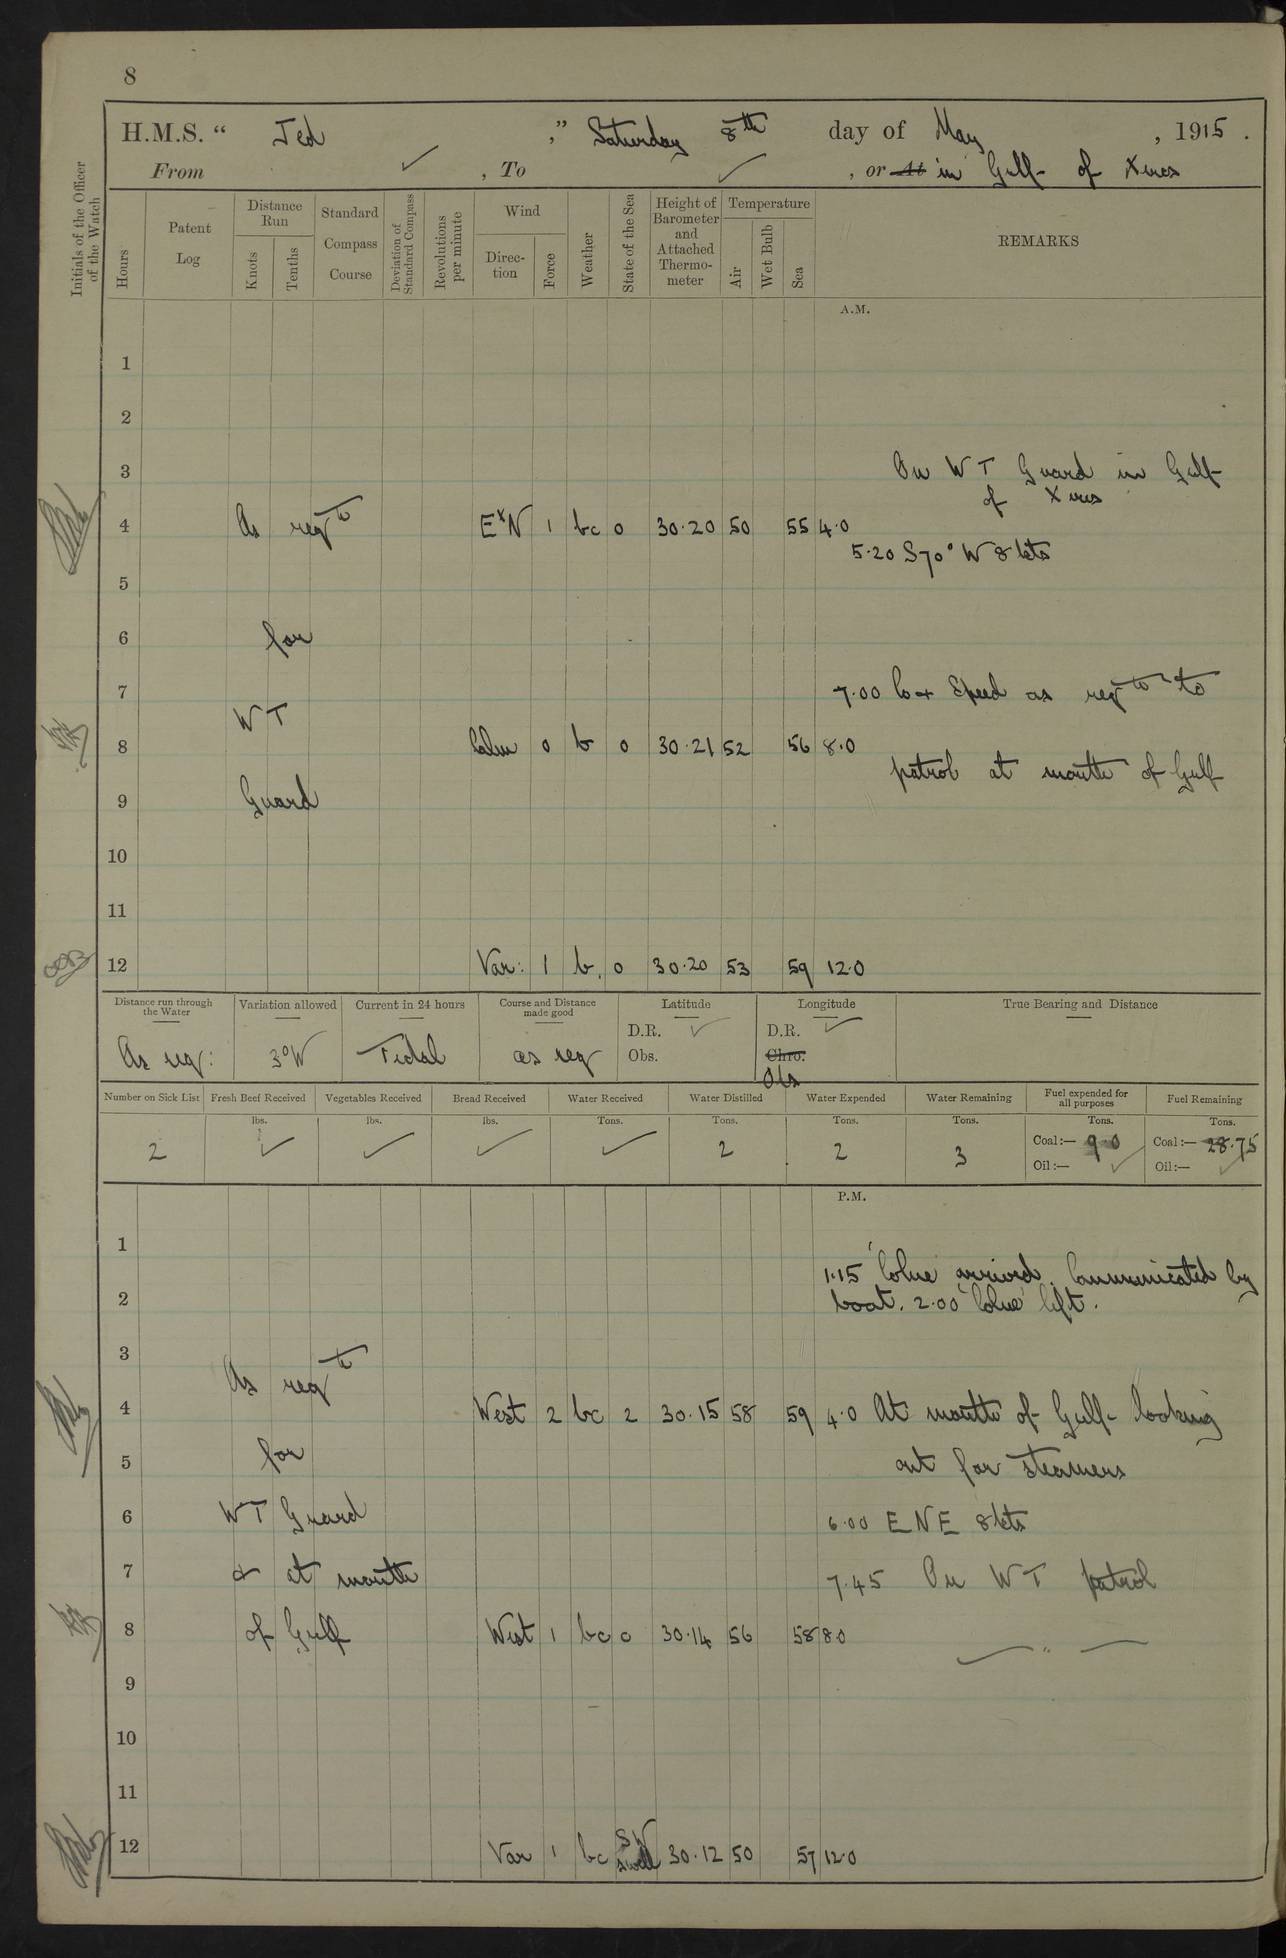 8
H.M.S. " Jed ," Saturday 8th day of May , 1915 .
From ✓ , To ✓ , or At in Gulf of Xeros
Initials of the Officer of the Watch
Hours
Patent Log
Distance Run
Knots
Tenths
Standard Compass Course
Deviation of Standard Compass
Revolutions per minute
Wind
Direction
Force
Weather
State of the Sea
Height of Barometer and Attached Thermometer
Temperature
Air
Wet Bulb
Sea
REMARKS
A.M.
1
2
3 On W T Guard in Gulf
of Xeros
4 As reqte E x N 1 bc 0 30.20 50 55 4.0
5.20 S70° W 8 kts
5
6 for
7 7.00 Co + Speed as reqte to
W T
8 Calm 0 b 0 30.21 52 56 8.0
patrol at mouth of Gulf
9 Guard
10
11
12 Var: 1 b. 0 30.20 53 59 12.0
Distance run through the Water
Variation allowed
Current in 24 hours
Course and Distance made good
Latitude
Longitude
True Bearing and Distance
D.R. ✓ D.R. ✓
Obs. Chro.
Obs
As req: 3°W Tidal as req
Number on Sick List
Fresh Beef Received
Vegetables Received
Bread Received
Water Received
Water Distilled
Water Expended
Water Remaining
Fuel expended for all purposes
Fuel Remaining
lbs. lbs. lbs. Tons. Tons. Tons. Tons. Tons. Tons.
2 ✓ ✓ ✓ ✓ 2 2 3 Coal:— 9.0 Coal:— 28.75
Oil:— ✓ Oil:— ✓
P.M.
1
1.15 'Colne' arrived. Communicated by
2 boat. 2.00 'Colne' left.
3
As reqte
4 West 2 bc 2 30.15 58 59 4.0 At mouth of Gulf looking
5 for out for steamers
6 W T Guard 6.00 E N E 8 kts
7 & at mouth 7.45 On W T patrol
8 of Gulf West 1 bc 0 30.14 56 58 8.0 — " —
9
10
11
12 Var 1 bc SW swell 30.12 50 57 12.0